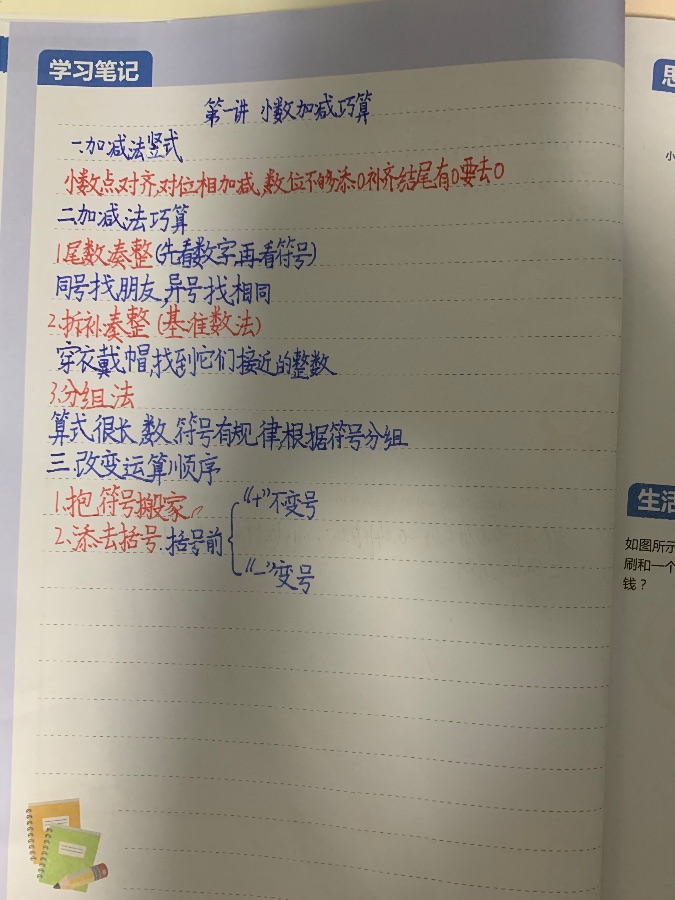 学习笔记
第一讲 小数加减巧算
一.加减法竖式
小数点对齐,对位相加减,数位不够添0补齐,结尾有0要去0
二.加减法巧算
1.尾数凑整(先看数字,再看符号)
同号找朋友,异号找相同
2.拆补凑整(基准数法)
穿衣戴帽,找到它们接近的整数
3.分组法
算式很长,数,符号有规律,根据符号分组
三.改变运算顺序
1.抱符号搬家
2.添去括号.括号前
“+”不变号
“-”变号
思
小
生活
如图所示
刷和一个
钱？